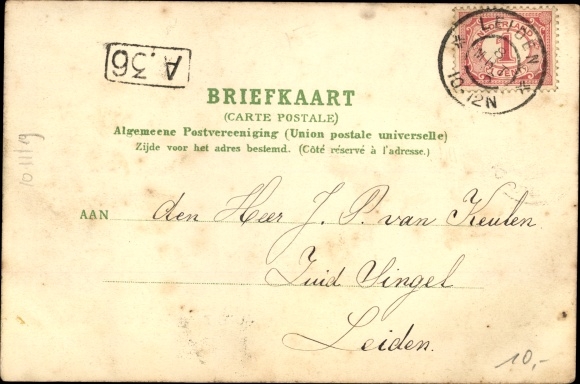 A.36
LEIDEN
10-12N
NEDERLAND
1
BRIEFKAART
(CARTE POSTALE)
Algemeene Postvereeniging (Union postale universelle)
Zijde voor het adres bestemd. (Côté réservé à l'adresse.)
AAN den Heer J. P. van Keulen
Zuid Singel
Leiden.
10,-